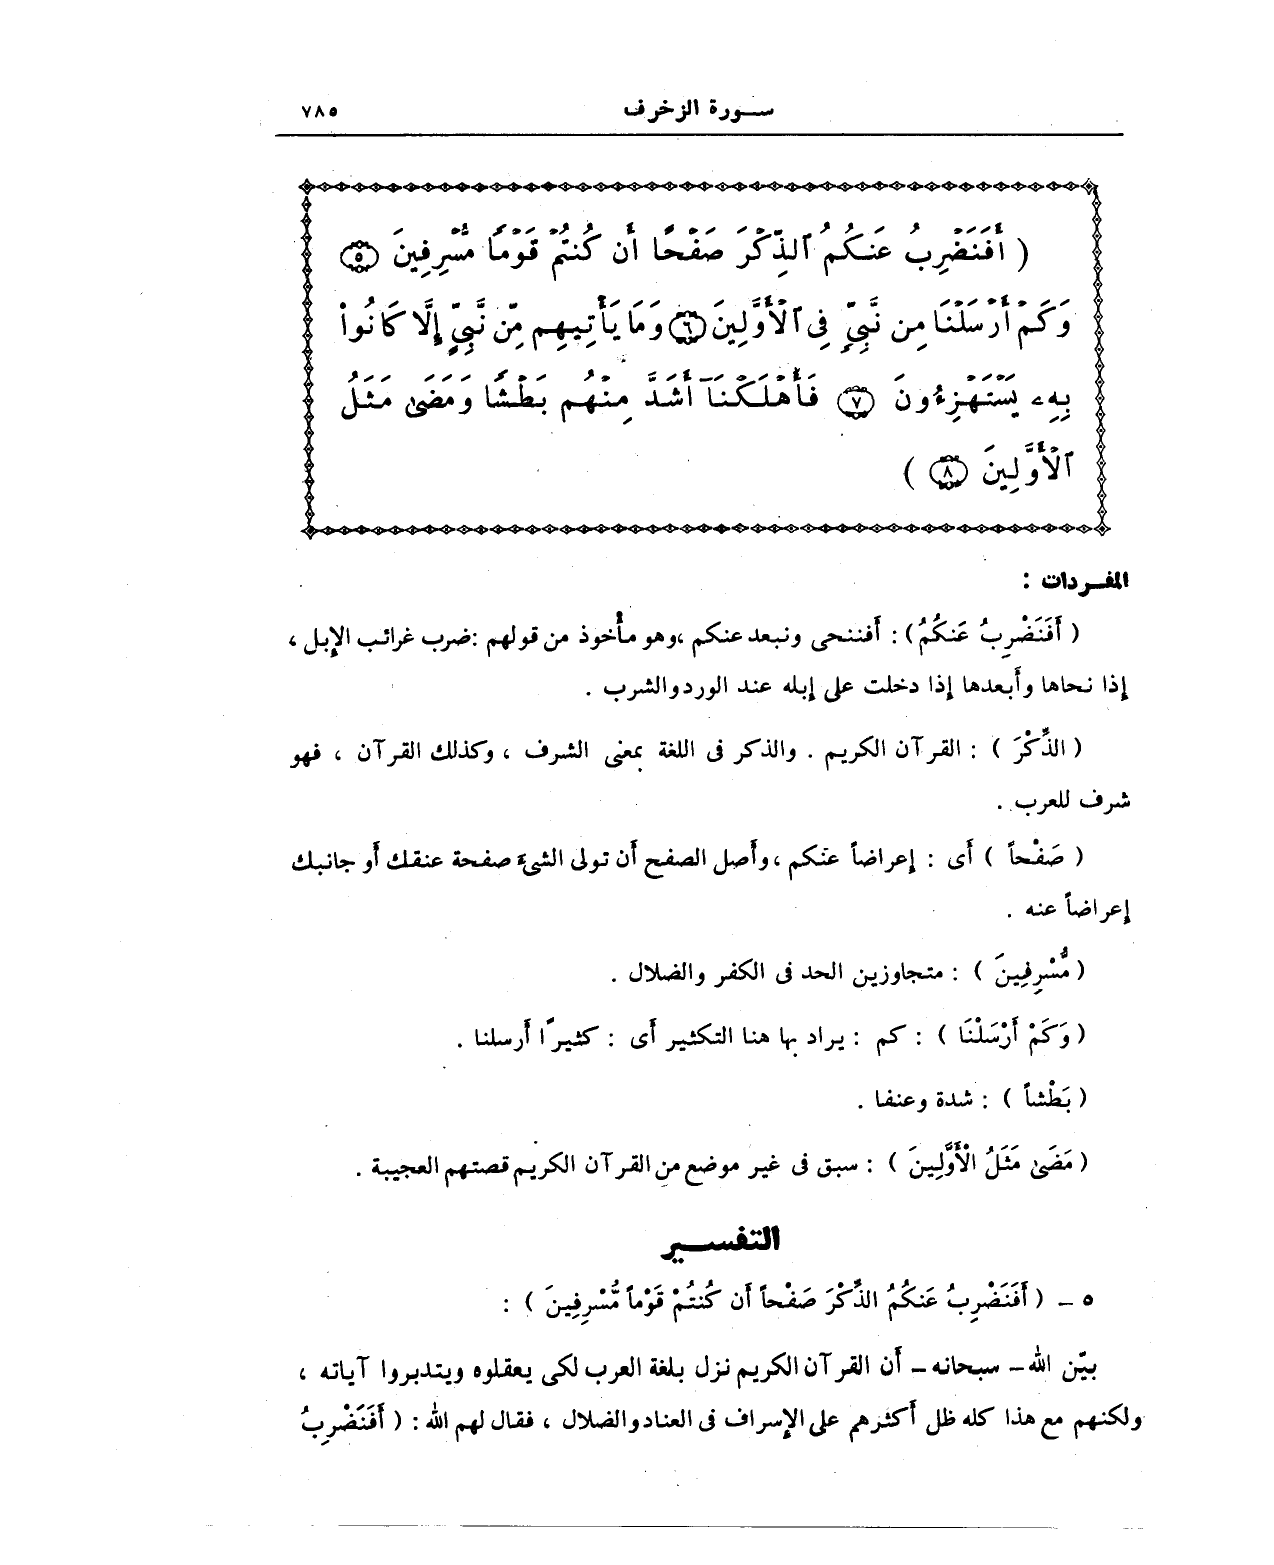 سورة الزخرف ٧٨٥
( أَفَنَضْرِبُ عَنكُمُ ٱلذِّكْرَ صَفْحًا أَن كُنتُمْ قَوْمًا مُّسْرِفِينَ ٥
وَكَمْ أَرْسَلْنَا مِن نَّبِىٍّ فِى ٱلْأَوَّلِينَ ٦ وَمَا يَأْتِيهِم مِّن نَّبِىٍّ إِلَّا كَانُوا۟
بِهِۦ يَسْتَهْزِءُونَ ٧ فَأَهْلَكْنَآ أَشَدَّ مِنْهُم بَطْشًا وَمَضَىٰ مَثَلُ
ٱلْأَوَّلِينَ ٨ )
المفردات :
( أَفَنَضْرِبُ عَنكُمُ ) : أفننحى ونبعد عنكم ، وهو مأخوذ من قولهم : ضرب غرائب الإبل ،
إذا نحاها وأبعدها إذا دخلت على إبله عند الورد والشرب .
( الذِّكْرَ ) : القرآن الكريم . والذكر فى اللغة بمعنى الشرف ، وكذلك القرآن ، فهو
شرف للعرب .
( صَفْحاً ) أى : إعراضاً عنكم ، وأصل الصفح أن تولى الشىء صفحة عنقك أو جانبك
إعراضاً عنه .
( مُّسْرِفِينَ ) : متجاوزين الحد فى الكفر والضلال .
( وَكَمْ أَرْسَلْنَا ) : كم : يراد بها هنا التكثير أى : كثيرًا أرسلنا .
( بَطْشاً ) : شدة وعنفا .
( مَضَىٰ مَثَلُ الْأَوَّلِينَ ) : سبق فى غير موضع من القرآن الكريم قصتهم العجيبة .
التفسير
٥ - ( أَفَنَضْرِبُ عَنكُمُ الذِّكْرَ صَفْحاً أَن كُنتُمْ قَوْماً مُّسْرِفِينَ ) :
بيّن الله - سبحانه - أن القرآن الكريم نزل بلغة العرب لكى يعقلوه ويتدبروا آياته ،
ولكنهم مع هذا كله ظل أكثرهم على الإسراف فى العناد والضلال ، فقال لهم الله : ( أَفَنَضْرِبُ